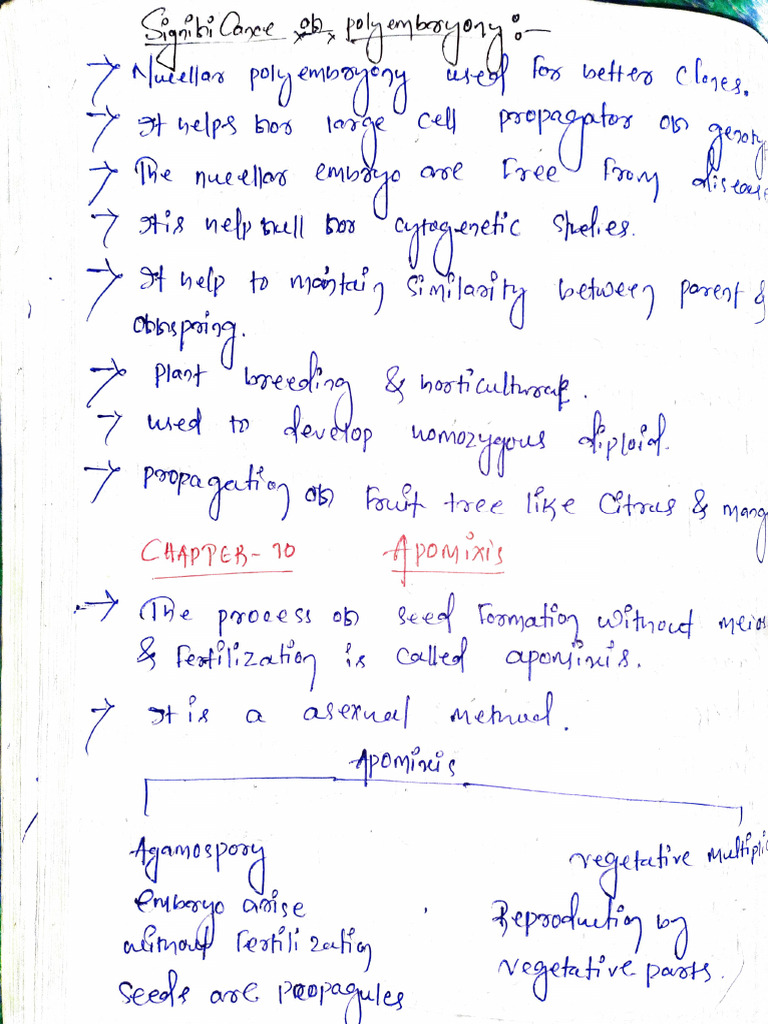 Significance of polyembryony:-
→ Nucellar polyembryony used for better clones.
→ It helps for large cell propagator of genoty
→ The nucellar embryo are free from disease
→ It is helpfull for cytogenetic studies.
→ It help to maintain similarity between parent &
offspring.
→ Plant breeding & horticultural.
→ used to develop homozygous diploid.
→ propagation of fruit tree like Citrus & mang
CHAPTER-10 APOMIXIS
→ The process of seed formation without meios
& fertilization is called apomixis.
→ It is a asexual method.
Apomixis
Agamospory vegetative multiplic
embryo arise Reproduction by
without fertilization vegetative parts.
seeds are propagules